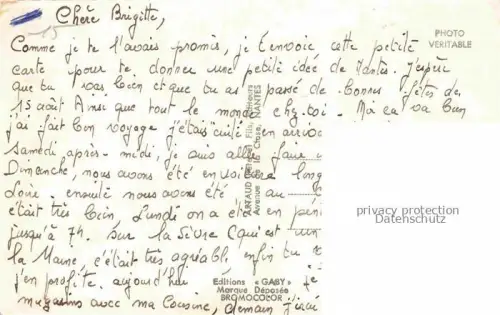 Chère Brigitte,
PHOTO
VERITABLE
Comme je te l'avais promis, je t'envoie cette petite
carte pour te donner une petite idée de Nantes. J'espère
que tu vas bien et que tu as passé de bonnes fêtes du
15 août Ainsi que tout le monde chez toi. Moi ça va bien
j'ai fait bon voyage j'étais cuite en arrivant
Samedi après-midi, je suis allée faire
Dimanche, nous avons été en voiture le long
Loire. ensuite nous avons été au
était très bien, Lundi on a été en péni
jusqu'à 7h. sur la Sèvre (qui est
la Maine, c'était très agréable enfin tu
j'en profite. aujourd'hui je
magasins avec ma Cousine, demain j'irai
ARTAUD Père et Fils, Editeurs
Avenue de la Close, NANTES
Editions « GABY »
Marque Déposée
BROMOCOLOR
privacy protection
Datenschutz